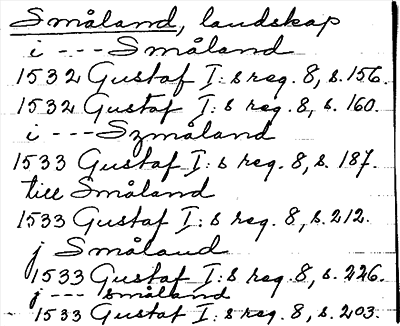 Småland, landskap
i --- Småland
1532 Gustaf I:s reg. 8, s. 156.
1532 Gustaf I:s reg. 8, s. 160.
i --- Szmåland
1533 Gustaf I:s reg. 8, s. 187.
till Småland
1533 Gustaf I:s reg. 8, s. 212.
j Småland
1533 Gustaf I:s reg. 8, s. 226.
j --- småland
1533 Gustaf I:s reg. 8, s. 203.